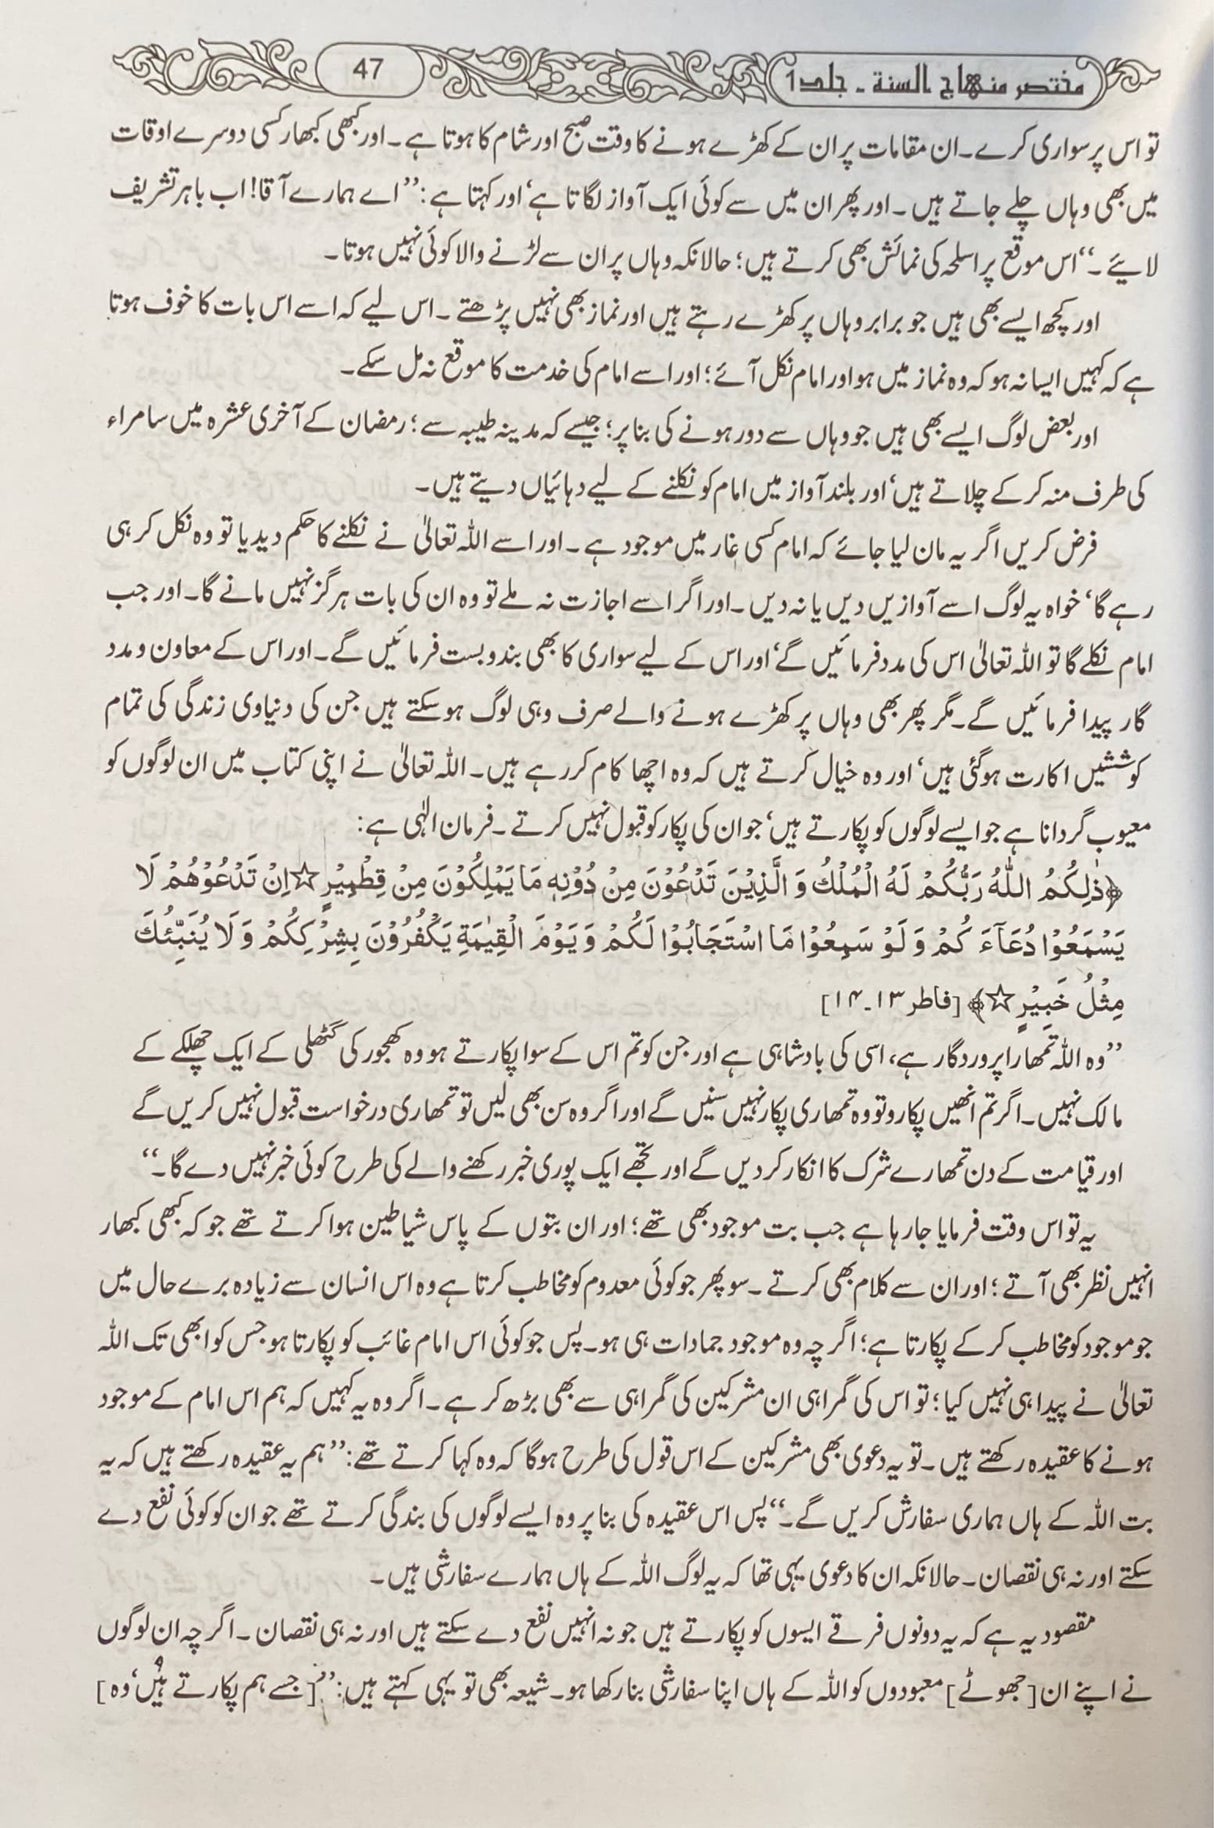 مختصر منهاج السنة ۔ جلد 1
47
تو اس پر سواری کرے۔ان مقامات پر ان کے کھڑے ہونے کا وقت صبح اور شام کا ہوتا ہے۔اور کبھی کبھار کسی دوسرے اوقات
میں بھی وہاں چلے جاتے ہیں ۔اور پھر ان میں سے کوئی ایک آواز لگاتا ہے‘ اور کہتا ہے :’’اے ہمارے آقا! اب باہر تشریف
لائیے ۔‘‘اس موقع پر اسلحہ کی نمائش بھی کرتے ہیں ؛ حالانکہ وہاں پر ان سے لڑنے والا کوئی نہیں ہوتا۔
اور کچھ ایسے بھی ہیں جو برابر وہاں پر کھڑے رہتے ہیں اور نماز بھی نہیں پڑھتے ۔اس لیے کہ اسے اس بات کا خوف ہوتا
ہے کہ کہیں ایسا نہ ہو کہ وہ نماز میں ہو اور امام نکل آئے ؛ اور اسے امام کی خدمت کا موقع نہ مل سکے۔
اور بعض لوگ ایسے بھی ہیں جو وہاں سے دور ہونے کی بنا پر ؛ جیسے کہ مدینہ طیبہ سے ؛ رمضان کے آخری عشرہ میں سامراء
کی طرف منہ کر کے چلاتے ہیں‘ اور بلند آواز میں امام کو نکلنے کے لیے دہائیاں دیتے ہیں ۔
فرض کریں اگر یہ مان لیا جائے کہ امام کسی غار میں موجود ہے ۔اور اسے اللہ تعالیٰ نے نکلنے کا حکم دیدیا تو وہ نکل کر ہی
رہے گا‘ خواہ یہ لوگ اسے آوازیں دیں یا نہ دیں ۔اور اگر اسے اجازت نہ ملے تو وہ ان کی بات ہرگز نہیں مانے گا۔اور جب
امام نکلے گا تو اللہ تعالیٰ اس کی مدد فرمائیں گے‘ اور اس کے لیے سواری کا بھی بندوبست فرمائیں گے۔اور اس کے معاون ومدد
گار پیدا فرمائیں گے۔مگر پھر بھی وہاں پر کھڑے ہونے والے صرف وہی لوگ ہوسکتے ہیں جن کی دنیاوی زندگی کی تمام
کوششیں اکارت ہوگئی ہیں‘ اور وہ خیال کرتے ہیں کہ وہ اچھا کام کررہے ہیں۔اللہ تعالیٰ نے اپنی کتاب میں ان لوگوں کو
معیوب گردانا ہے جو ایسے لوگوں کو پکارتے ہیں‘ جو ان کی پکار کو قبول نہیں کرتے ۔فرمان الٰہی ہے :
﴿ذٰلِكُمُ اللّٰهُ رَبُّكُمْ لَهُ الْمُلْكُ وَ الَّذِيْنَ تَدْعُوْنَ مِنْ دُوْنِهٖ مَا يَمْلِكُوْنَ مِنْ قِطْمِيْرٍ ☆ اِنْ تَدْعُوْهُمْ لَا
يَسْمَعُوْا دُعَآءَ كُمْ وَ لَوْ سَمِعُوْا مَا اسْتَجَابُوْا لَكُمْ وَ يَوْمَ الْقِيٰمَةِ يَكْفُرُوْنَ بِشِرْكِكُمْ وَ لَا يُنَبِّئُكَ
مِثْلُ خَبِيْرٍ ☆﴾ [فاطر ۱۳۔۱۴]
’’وہ اللہ تمھارا پروردگار ہے، اسی کی بادشاہی ہے اور جن کو تم اس کے سوا پکارتے ہو وہ کھجور کی گٹھلی کے ایک چھلکے کے
مالک نہیں۔اگر تم انھیں پکارو تو وہ تمھاری پکار نہیں سنیں گے اور اگر وہ سن بھی لیں تو تمھاری درخواست قبول نہیں کریں گے
اور قیامت کے دن تمھارے شرک کا انکار کر دیں گے اور تجھے ایک پوری خبر رکھنے والے کی طرح کوئی خبر نہیں دے گا۔‘‘
یہ تو اس وقت فرمایا جا رہا ہے جب بت موجود بھی تھے ؛ اور ان بتوں کے پاس شیاطین ہوا کرتے تھے جو کہ کبھی کبھار
انہیں نظر بھی آتے ؛ اور ان سے کلام بھی کرتے ۔سو پھر جو کوئی معدوم کو مخاطب کرتا ہے وہ اس انسان سے زیادہ برے حال میں
جو موجود کو مخاطب کر کے پکارتا ہے ؛ اگر چہ وہ موجود جمادات ہی ہو۔پس جو کوئی اس امام غائب کو پکارتا ہو جس کو ابھی تک اللہ
تعالیٰ نے پیدا ہی نہیں کیا ؛ تو اس کی گمراہی ان مشرکین کی گمراہی سے بھی بڑھ کر ہے ۔اگر وہ یہ کہیں کہ ہم اس امام کے موجود
ہونے کا عقیدہ رکھتے ہیں ۔تو یہ دعوی بھی مشرکین کے اس قول کی طرح ہوگا کہ وہ کہا کرتے تھے :’’ہم یہ عقیدہ رکھتے ہیں کہ یہ
بت اللہ کے ہاں ہماری سفارش کریں گے۔‘‘پس اس عقیدہ کی بنا پر وہ ایسے لوگوں کی بندگی کرتے تھے جو ان کو کوئی نفع دے
سکتے اور نہ ہی نقصان ۔حالانکہ ان کا دعوی یہی تھا کہ یہ لوگ اللہ کے ہاں ہمارے سفارشی ہیں ۔
مقصود یہ ہے کہ یہ دونوں فرقے ایسوں کو پکارتے ہیں جو نہ انہیں نفع دے سکتے ہیں اور نہ ہی نقصان ۔اگر چہ ان لوگوں
نے اپنے ان [جھوٹے ] معبودوں کو اللہ کے ہاں اپنا سفارشی بنا رکھا ہو۔شیعہ بھی تو یہی کہتے ہیں :’’[جسے ہم پکارتے ہیں‘ وہ]